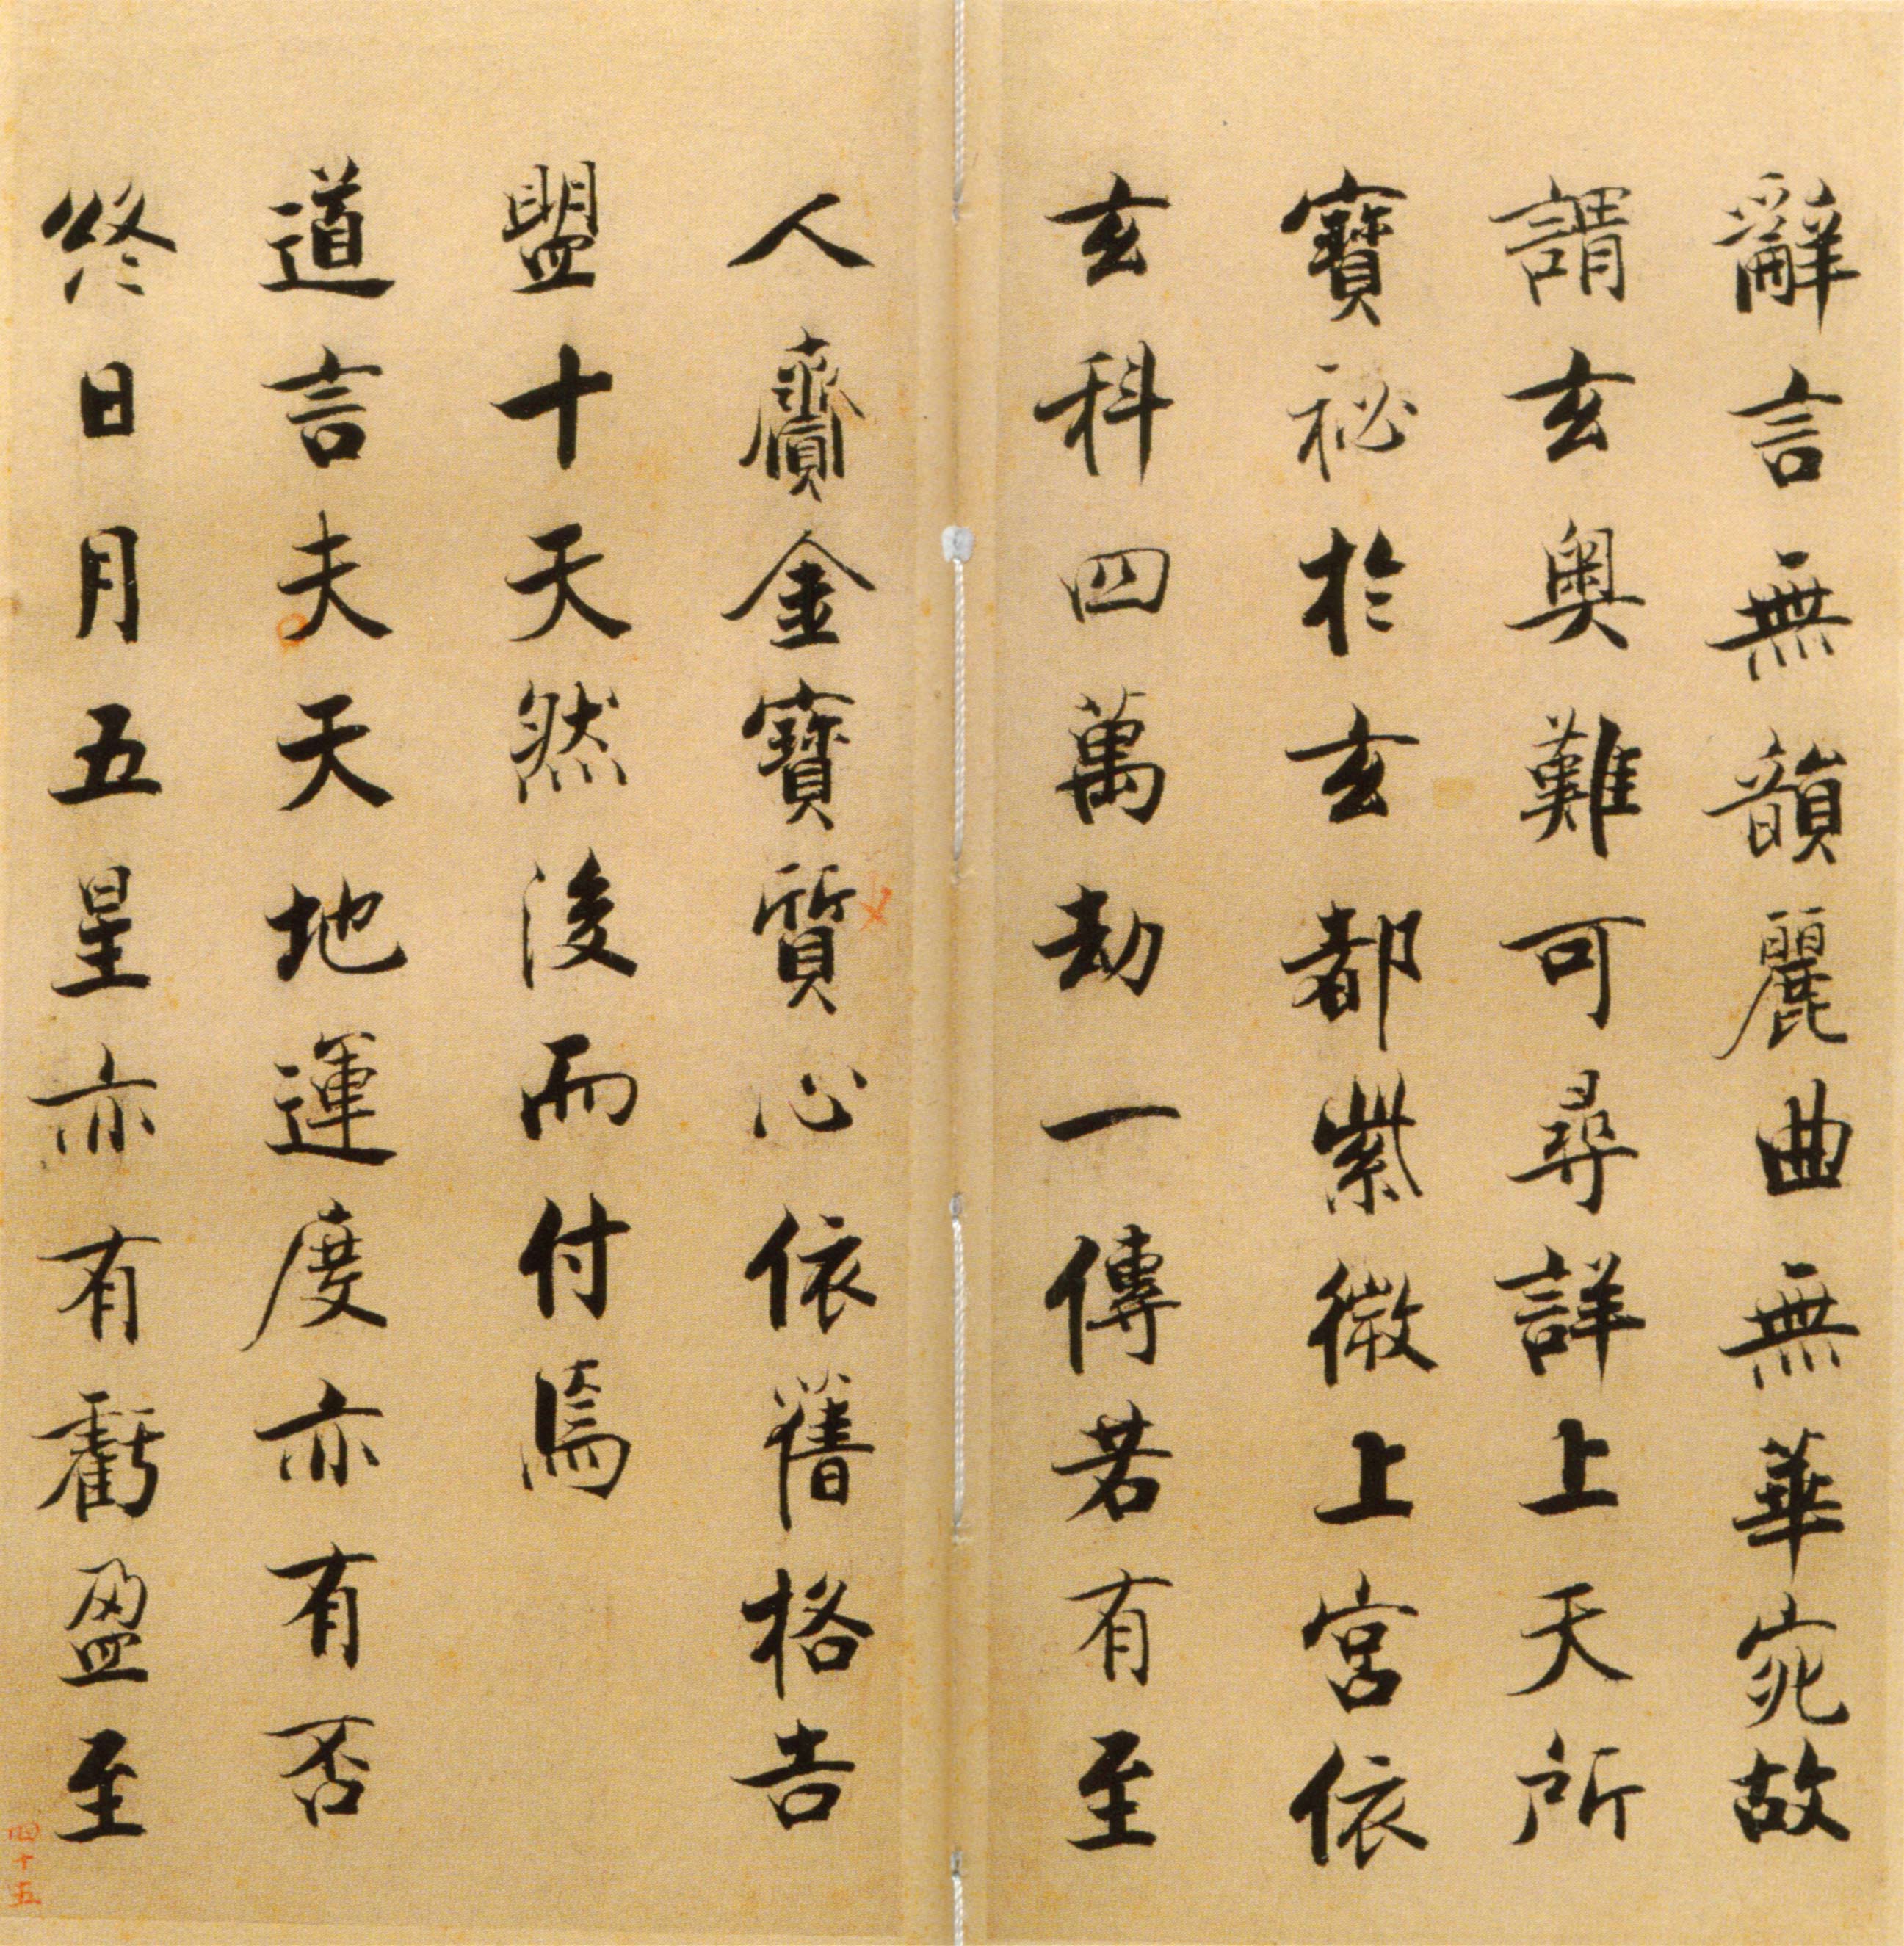 辭言無韻麗曲無華宛故
謂玄奧難可尋詳上天所
寶祕於玄都紫微上宮依
玄科四萬劫一傳若有至
人齎金寶質心依舊格告
盟十天然後而付焉
道言夫天地運度亦有否
終日月五星亦有虧盈至
四十五